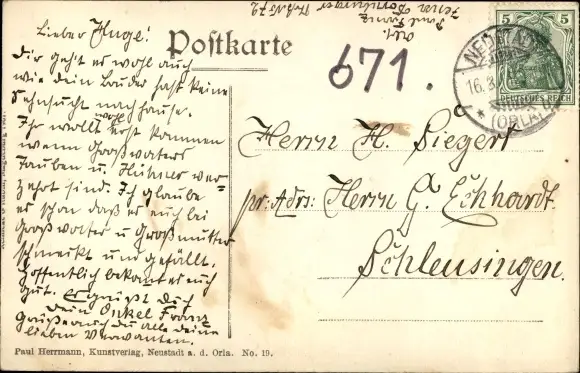 Lieber Hugo!
Dir geht es wohl auch
wie dein Bruder hast keine
Sehnsucht nach Hause.
Ihr wollt wohl erst kommen
wenn Großvaters
Tauben u. Hühner ver-
zehrt sind. Ich glaube
es schon daß es euch bei
Großvater u Großmutter
schmeckt und gefällt.
Hoffentlich bekomt es euch
gut. Es grüßt Dich
dein Onkel Franz
Grüße auch du alle deine
lieben Verwanten.
Postkarte
671.
5 5
DEUTSCHES REICH
NEUSTADT
16.3
(ORLA)
Herrn H. Siegert
pr. Adr: Herrn G. Eckhardt.
Schleusingen.
Paul Herrmann, Kunstverlag, Neustadt a. d. Orla. No. 19.